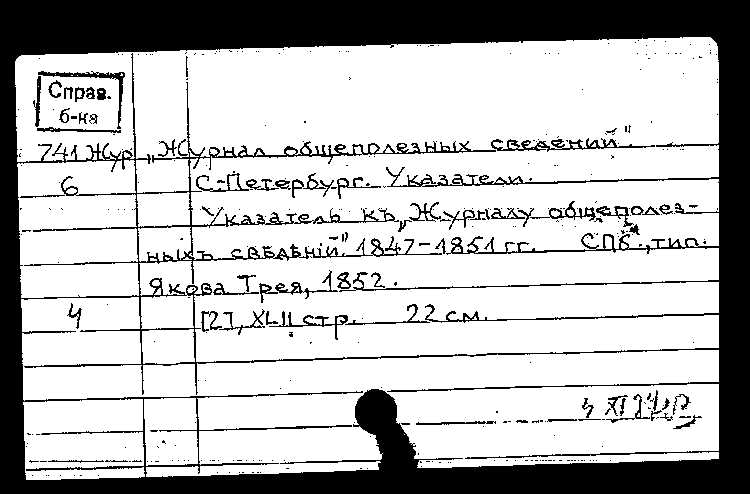 Справ.
б-ка
741 Жур „Журнал общеполезных сведений".
6 С.-Петербург. Указатели.
Указатель къ „Журналу общеполез-
ныхъ свѣдѣнiй". 1847-1851 гг. СПб., тип.
Якова Трея, 1852.
4 [2], XLII стр. 22 см.